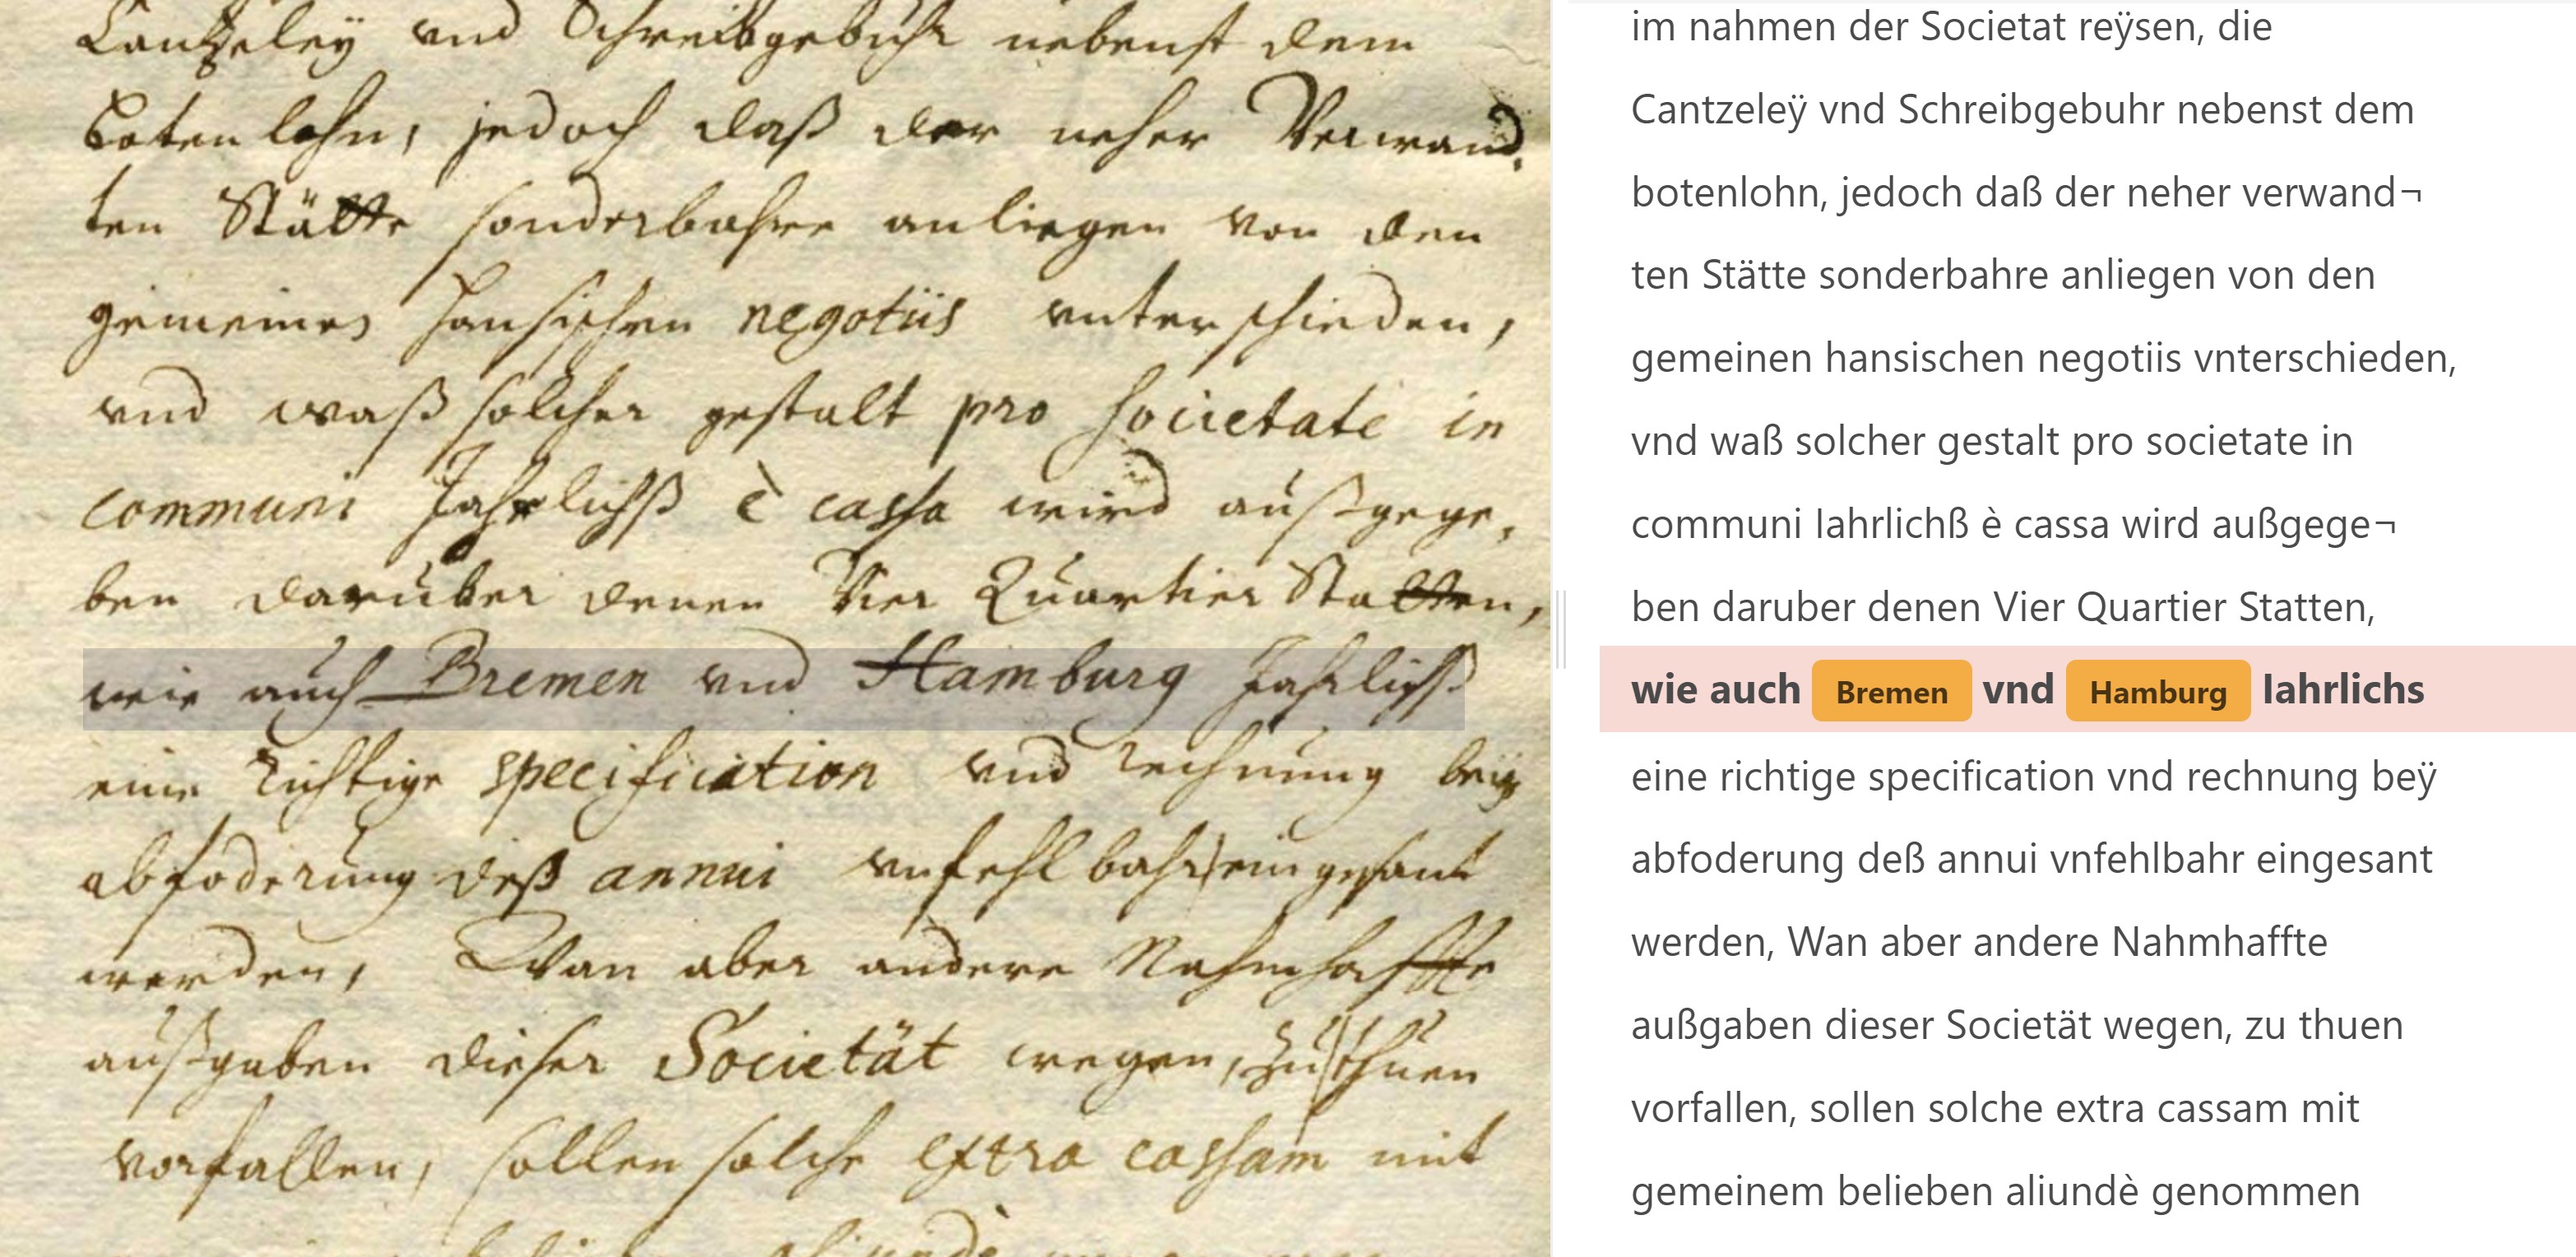 Cantzeleÿ vnd Schreibgebuhr nebenst dem
botenlohn, jedoch daß der neher Verwand¬
ten Stätte sonderbahre anliegen von den
gemeinen hansischen negotiis vnterschieden,
vnd waß solcher gestalt pro societate in
communi Jahrlichß è cassa wird außgege¬
ben darüber denen Vier Quartier Statten,
wie auch Bremen vnd Hamburg Jahrlichß
eine richtige specification vnd rechnung beÿ
abfoderung deß annui vnfehlbahr eingesant
werden, Wan aber andere Nahmhaffte
außgaben dieser Societät wegen, zu thuen
vorfallen, sollen solche extra cassam mit
im nahmen der Societat reÿsen, die
Cantzeleÿ vnd Schreibgebuhr nebenst dem
botenlohn, jedoch daß der neher verwand¬
ten Stätte sonderbahre anliegen von den
gemeinen hansischen negotiis vnterschieden,
vnd waß solcher gestalt pro societate in
communi Iahrlichß è cassa wird außgege¬
ben daruber denen Vier Quartier Statten,
wie auch Bremen vnd Hamburg Iahrlichs
eine richtige specification vnd rechnung beÿ
abfoderung deß annui vnfehlbahr eingesant
werden, Wan aber andere Nahmhaffte
außgaben dieser Societät wegen, zu thuen
vorfallen, sollen solche extra cassam mit
gemeinem belieben aliundè genommen